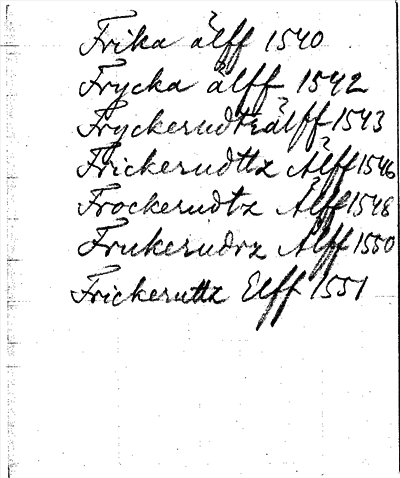 Frika älff 1540
Frycka älff 1542
Fryckerudtzälff 1543
Frickerudttz Älff 1546
Frockerudtz Älff 1548
Frukerudrz Älff 1550
Frickeruttz Elff 1551